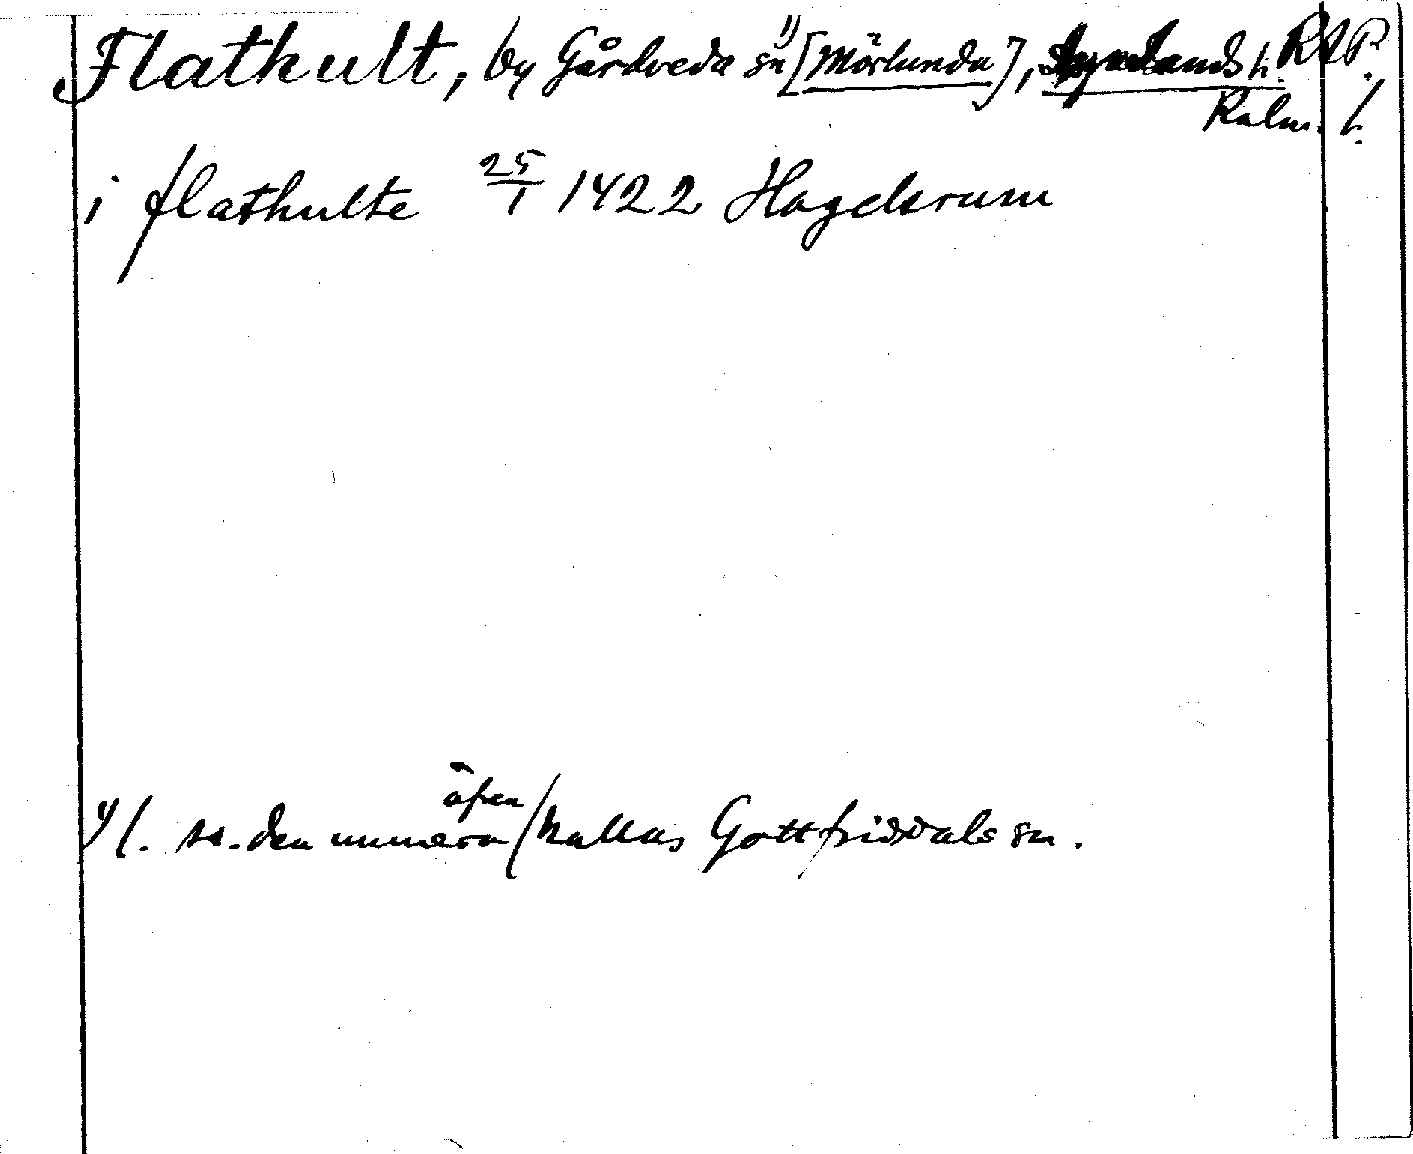 Flathult, by Gårdveda sn 1) [Mörlunda], Aspelands h. RAP.
Kalm. l.
i flathulte 25/1 1422 Hagelsrum
1) l. sn. den numera äfven kallas Gottfridsdals sn.